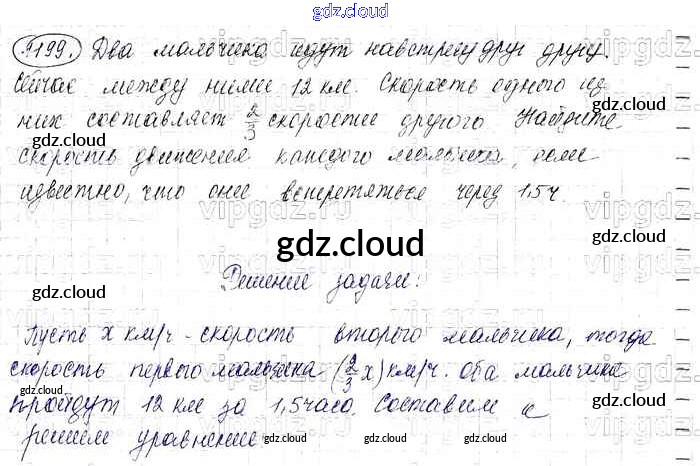 gdz.cloud
1199. Два мальчика идут навстречу друг другу.
Сейчас между ними 12 км. Скорость одного из
них составляет 2/3 скорости другого. Найдите
скорость движения каждого мальчика, если
известно, что они встретяться через 1,5 ч.
gdz.cloud
Решение задачи:
Пусть x км/ч - скорость второго мальчика, тогда
скорость первого мальчика (2/3 x) км/ч. Оба мальчика
пройдут 12 км за 1,5 часа. Составим и
решим уравнение
gdz.cloud